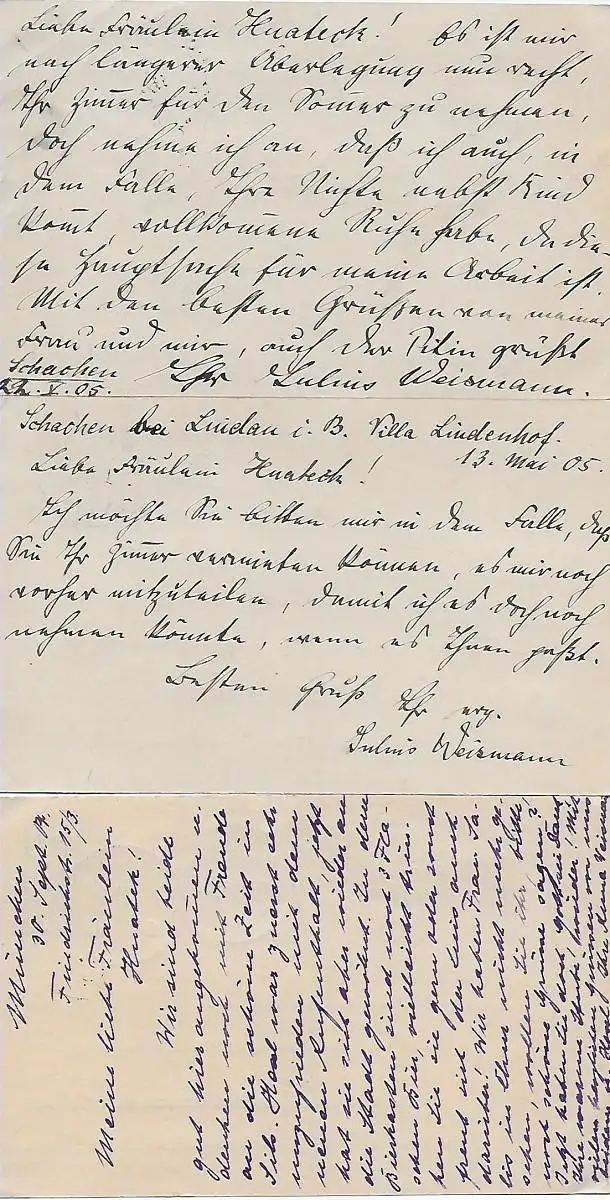 Liebe Fräulein Huateck! Es ist mir
nach längerer Überlegung nun recht,
Ihr Zimmer für den Sommer zu nehmen,
doch nehme ich an, daß ich auch, in
dem Falle, Ihre Nichte nebst Kind
kommt, vollkommene Ruhe habe, da die-
se Hauptsache für meine Arbeit ist.
Mit den besten Grüßen von meiner
Frau und mir, auch der grüßt
Schachen Ihr Julius Weismann.
22. V. 05.
Schachen bei Lindau i. B. Villa Lindenhof.
13. Mai 05.
Liebe Fräulein Huateck!
Ich möchte Sie bitten mir in dem Falle, daß
Sie Ihr Zimmer vermieten können, es mir noch
vorher mitzuteilen, damit ich es doch noch
nehmen könnte, wenn es Ihnen paßt.
Besten Gruß Ihr erg.
Julius Weismann
München
30. Sept. 14.
Friedrichstr. 15/3
Meine liebe Fräulein
Huatek!
Wir sind beide
gut hier angekommen u.
denken noch mit Freude
an die schöne Zeit in
war zuerst sehr
unzufrieden mit dem
neuen Aufenthalt, jetzt
hat sie sich aber wieder an
die Stadt gewöhnt. In dem
sind noch 3 Fla-
schen Bier, vielleicht
Sie sie gern oder sonst
freut sich der
darüber! Wir haben Frau
in Ihrer nicht mehr ge-
sehen, wollen Sie ihr, bitte
noch schöne Grüße sagen?
Jetzt haben Sie dort
Mit
vielen herzlichen Grüßen von uns